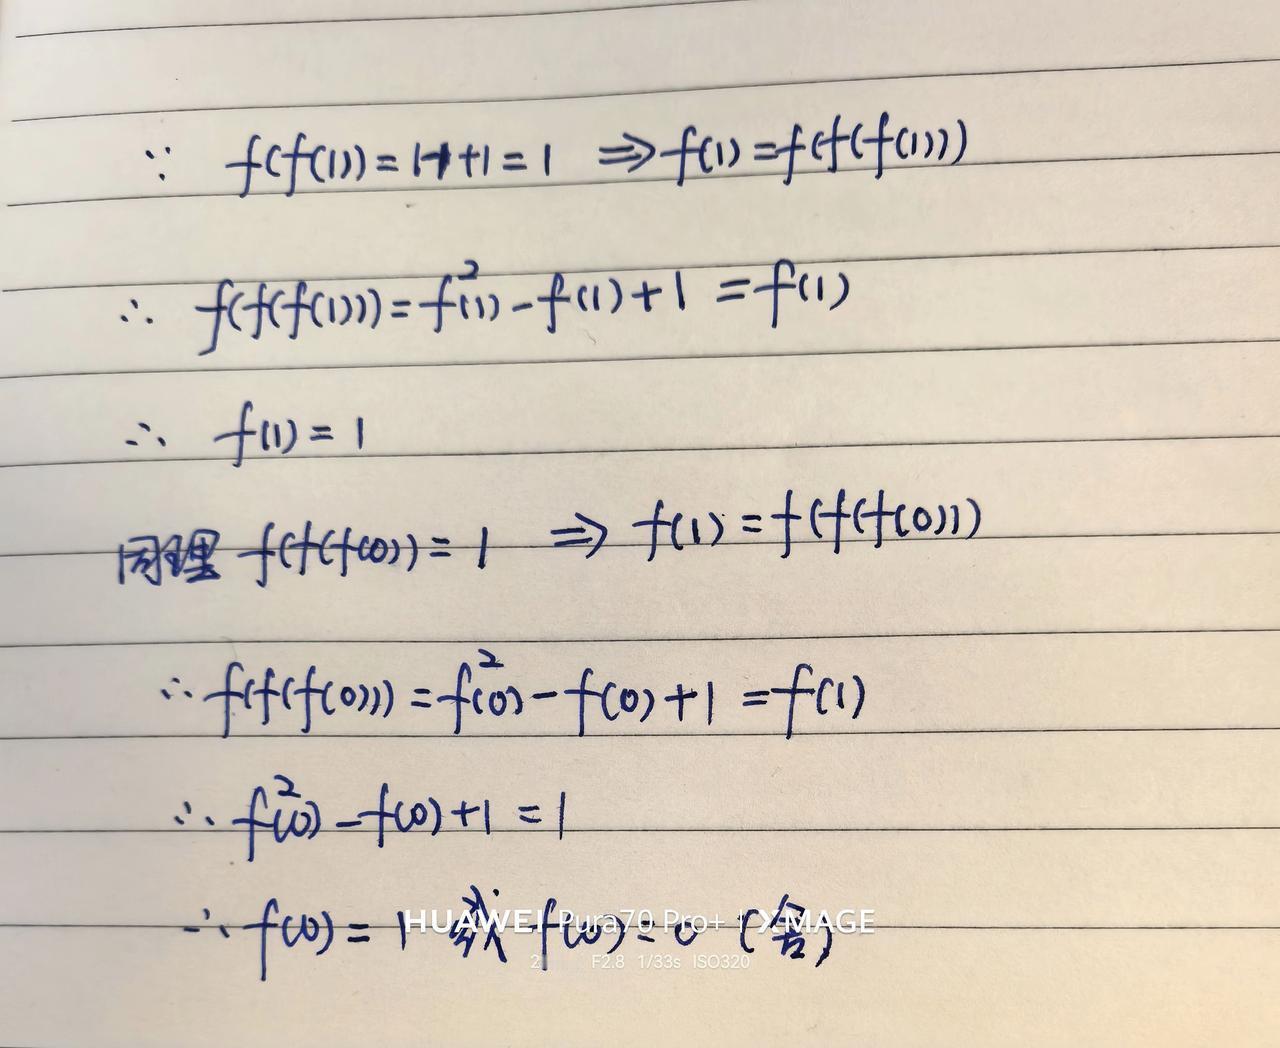 ∵ f(f(1)) = 1-1+1 = 1 ⇒ f(1) = f(f(f(1)))
∴ f(f(f(1))) = f²(1) - f(1) + 1 = f(1)
∴ f(1) = 1
同理 f(f(f(0)) = 1 ⇒ f(1) = f(f(f(0)))
∴ f(f(f(0))) = f²(0) - f(0) + 1 = f(1)
∴ f²(0) - f(0) + 1 = 1
∴ f(0) = 1 或 f(0) = 0 (舍)
HUAWEI Pura70 Pro+ | XMAGE
F2.8 1/33s ISO320